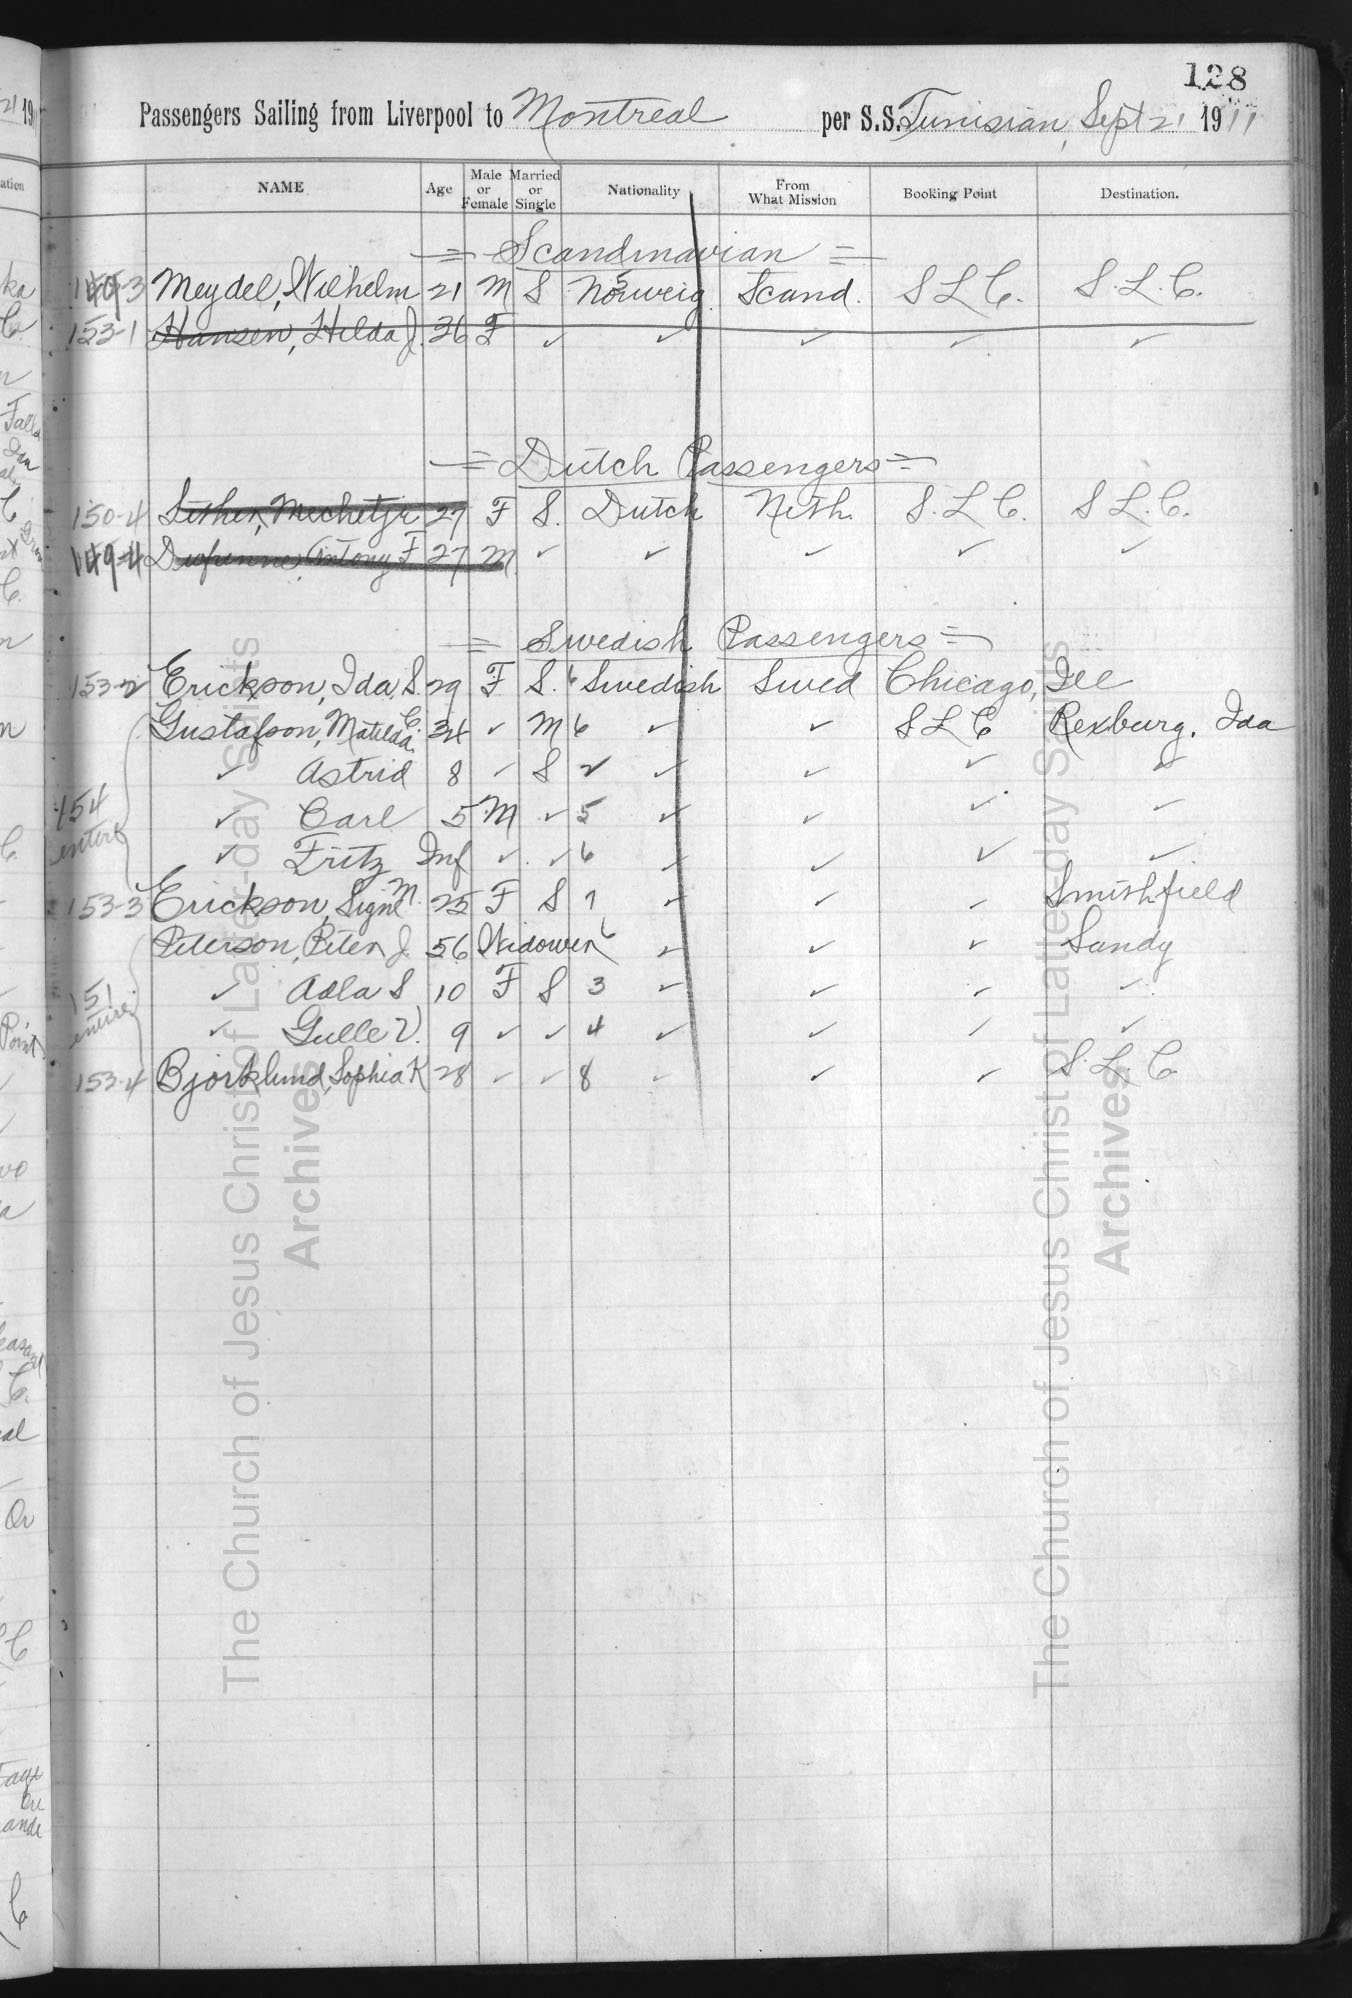 128
Passengers Sailing from Liverpool to Montreal per S.S. Tunisian, Sept 21 1911
NAME Age Male or Female Married or Single Nationality From What Mission Booking Point Destination.
= Scandinavian =
149-3 Meydel, Wilhelm 21 M S 5 Norweig. Scand. S L C. S. L. C.
153-1 Hansen, Hilda J. 36 F ✓ ✓ ✓ ✓ ✓
= Dutch Passengers =
150-4 Mechetje 27 F S. Dutch Neth. S. L C. S L. C.
149-4 Antony F 27 M ✓ ✓ ✓ ✓ ✓
= Swedish Passengers =
153-2 Erickson, Ida S. 29 F S. 6 Swedish Swed Chicago, Ill
Gustafson, Matilda E. 34 ✓ M 6 ✓ ✓ S L C Rexburg. Ida
✓ Astrid 8 ✓ S 2 ✓ ✓ ✓ ✓
154 ✓ Carl 5 M ✓ 5 ✓ ✓ ✓ ✓
entire ✓ Fritz Inf ✓ ✓ 6 ✓ ✓ ✓ ✓
153-3 Erickson, Signe M. 25 F S 7 ✓ ✓ ✓ Smithfield
Peterson, Peter J. 56 Widower 6 ✓ ✓ ✓ Sandy
151 ✓ Adla S 10 F S 3 ✓ ✓ ✓ ✓
entire ✓ Gulle V. 9 ✓ ✓ 4 ✓ ✓ ✓ ✓
153-4 Bjorklund, Sophia K 28 ✓ ✓ 8 ✓ ✓ ✓ S. L. C
The Church of Jesus Christ of Latter-day Saints
Archives
The Church of Jesus Christ of Latter-day Saints
Archives